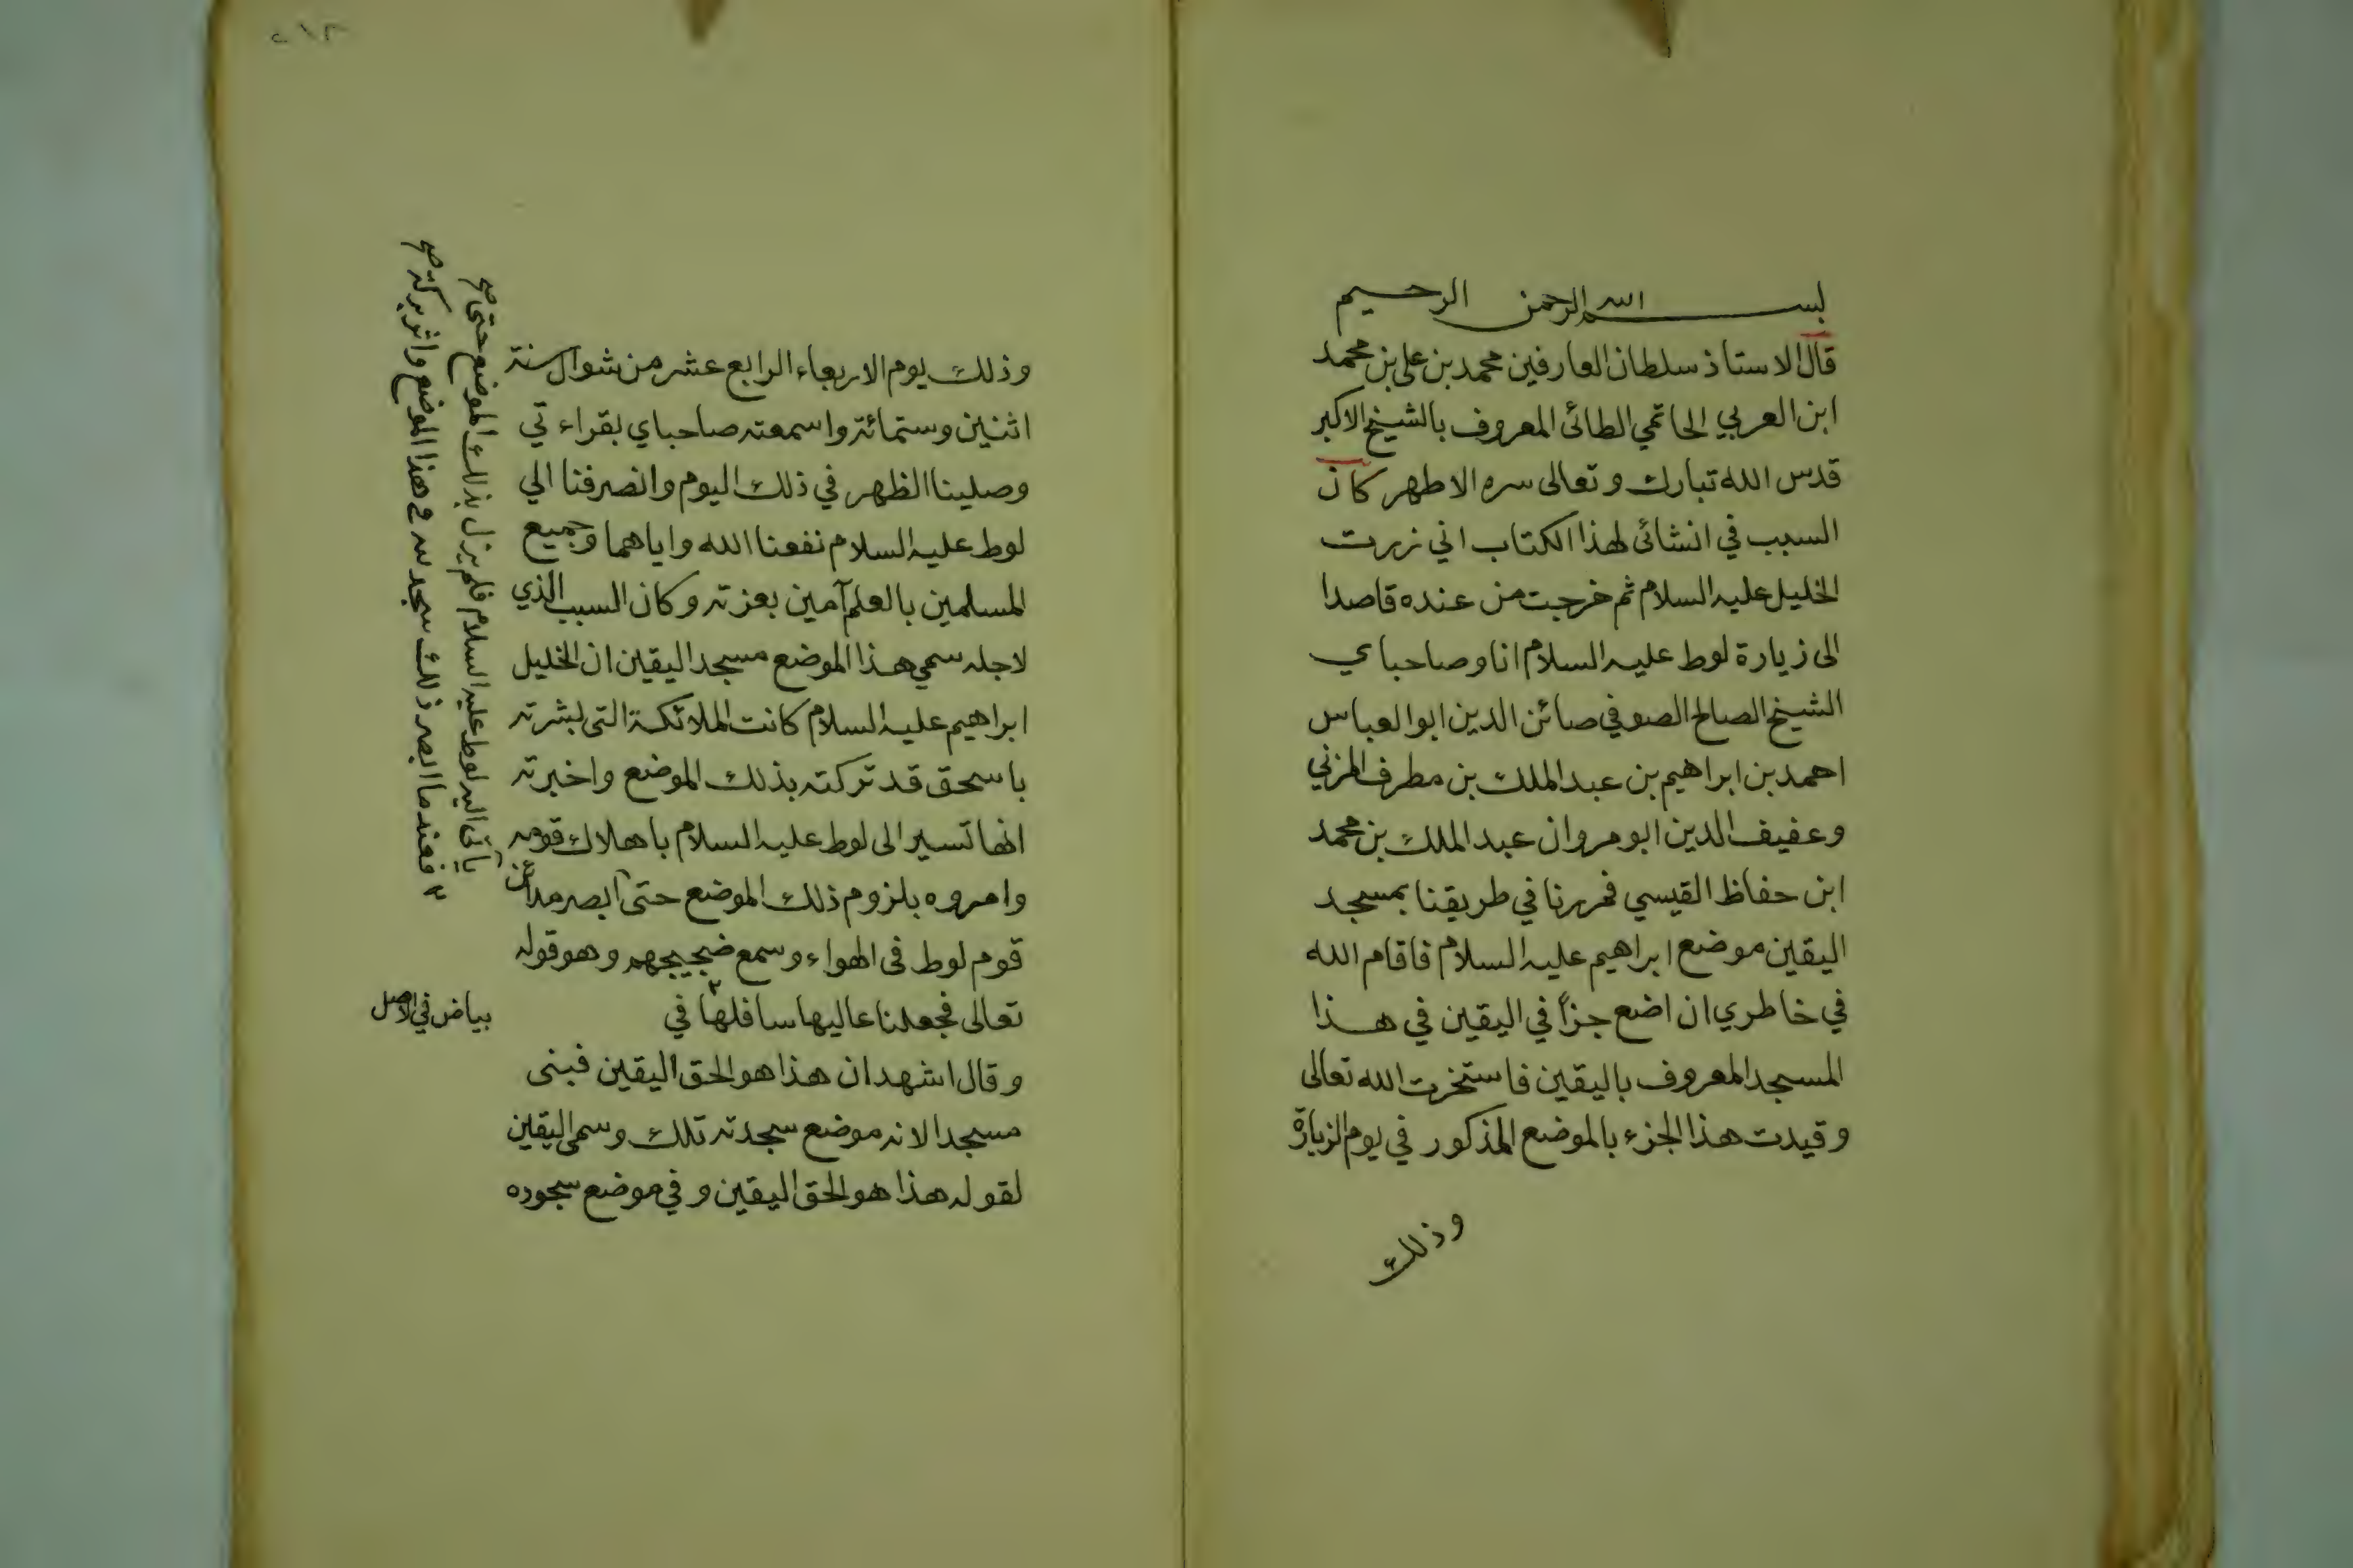 بسم الله الرحمن الرحيم
قال الاستاذ سلطان العارفين محمد بن علي بن محمد
ابن العربي الحاتمي الطائى المعروف بالشيخ الاكبر
قدس الله تبارك وتعالى سره الاطهر كان
السبب في انشائى لهذا الكتاب اني زرت
الخليل عليه السلام ثم خرجت من عنده قاصدا
الى زيارة لوط عليه السلام انا وصاحباي
الشيخ الصالح الصوفي صائن الدين ابو العباس
احمد بن ابراهيم بن عبد الملك بن مطرف المزني
وعفيف الدين ابو مروان عبد الملك بن محمد
ابن حفاظ القيسي فمررنا في طريقنا بمسجد
اليقين موضع ابراهيم عليه السلام فاقام الله
في خاطري ان اضع جزأ في اليقين في هذا
المسجد المعروف باليقين فاستخرت الله تعالى
وقيدت هذا الجزء بالموضع المذكور في يوم الزيارة
وذلك
٢١٢
وذلك يوم الاربعاء الرابع عشر من شوال سنة
اثنين وستمائة واسمعته صاحباي بقراءتي
وصلينا الظهر في ذلك اليوم وانصرفنا الي
لوط عليه السلام نفعنا الله واياهما وجميع
المسلمين بالعلم آمين بعزته وكان السبب الذي
لاجله سمي هذا الموضع مسجد اليقين ان الخليل
ابراهيم عليه السلام كانت الملائكة التى بشرته
باسحق قد تركته بذلك الموضع واخبرته
انها تسير الى لوط عليه السلام باهلاك قومه
وامروه بلزوم ذلك الموضع حتى ابصر مدائن
قوم لوط فى الهواء وسمع ضجيجهم وهو قوله
تعالى فجعلنا عاليها سافلها في
بياض في الاصل
وقال اشهد ان هذا هو الحق اليقين فبنى
مسجدا لانه موضع سجدته تلك وسمى اليقين
لقوله هذا هو الحق اليقين وفي موضع سجوده
يأتى اليه لوط عليه السلام فلم يزل بذلك الموضع حتى صح
٢ فعندما ابصر ذلك سجد لله في هذا الموضع واثر بركته صح